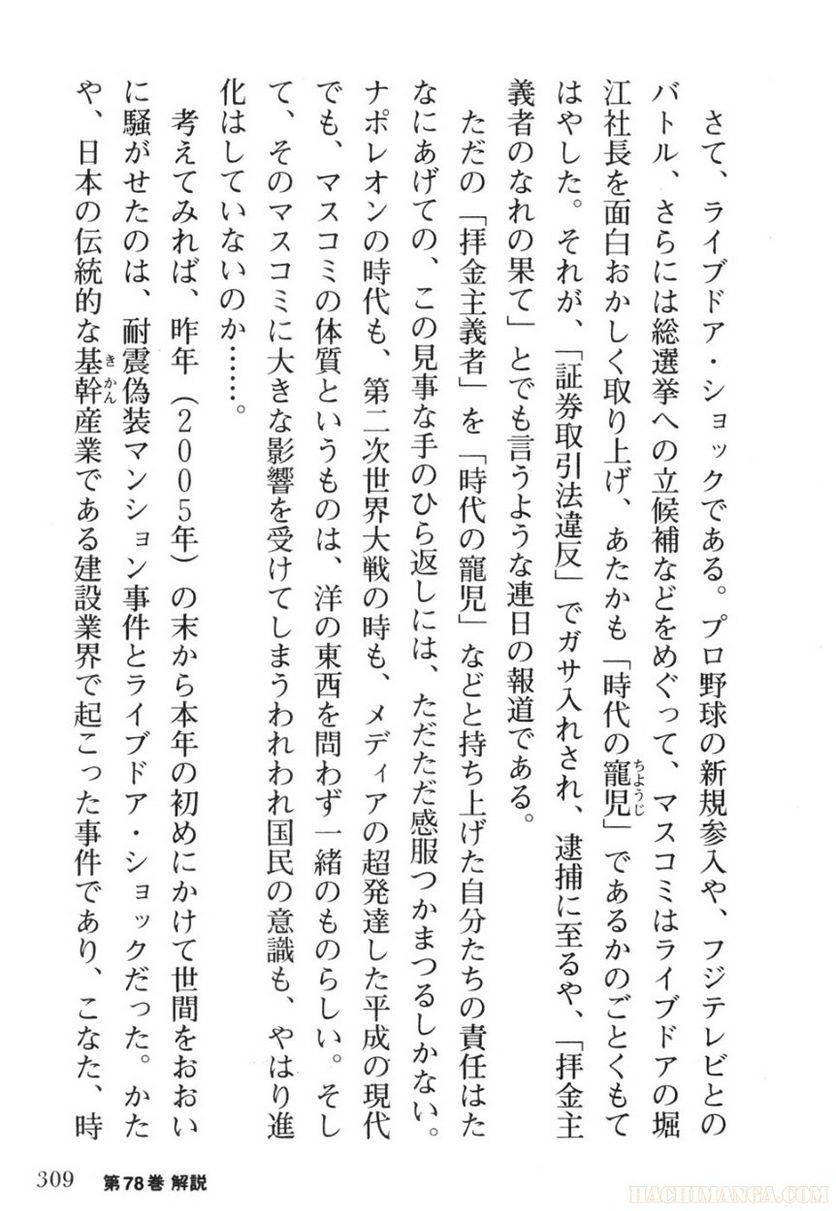 さて、ライブドア・ショックである。プロ野球の新規参入や、フジテレビとの
バトル、さらには総選挙への立候補などをめぐって、マスコミはライブドアの堀
江社長を面白おかしく取り上げ、あたかも「時代の寵児」であるかのごとくもて
はやした。それが、「証券取引法違反」でガサ入れされ、逮捕に至るや、「拝金主
義者のなれの果て」とでも言うような連日の報道である。
ただの「拝金主義者」を「時代の寵児」などと持ち上げた自分たちの責任はた
なにあげての、この見事な手のひら返しには、ただただ感服つかまつるしかない。
ナポレオンの時代も、第二次世界大戦の時も、メディアの超発達した平成の現代
でも、マスコミの体質というものは、洋の東西を問わず一緒のものらしい。そし
て、そのマスコミに大きな影響を受けてしまうわれわれ国民の意識も、やはり進
化はしていないのか……。
考えてみれば、昨年（2005年）の末から本年の初めにかけて世間をおおい
に騒がせたのは、耐震偽装マンション事件とライブドア・ショックだった。かた
や、日本の伝統的な基幹産業である建設業界で起こった事件であり、こなた、時
ちようじ
きかん
309 第78巻 解説
HACHIMANGA.COM